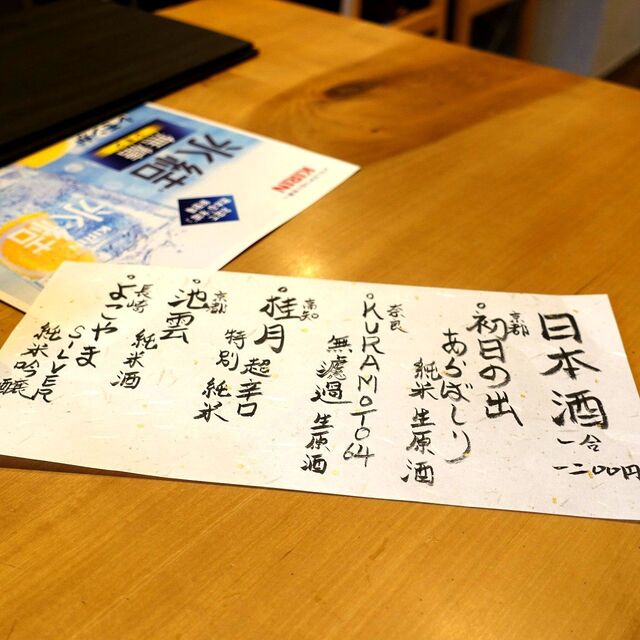 日本酒
一合
一二〇〇円
京都
初日の出
あらばしり
純米 生原酒
奈良
KURAMOTO 64
無濾過 生原酒
高知
桂月
超辛口
特別 純米
京都
池雲
純米酒
長崎
よこやま
SILVER
純米吟醸
氷結
無糖
KIRIN
氷結